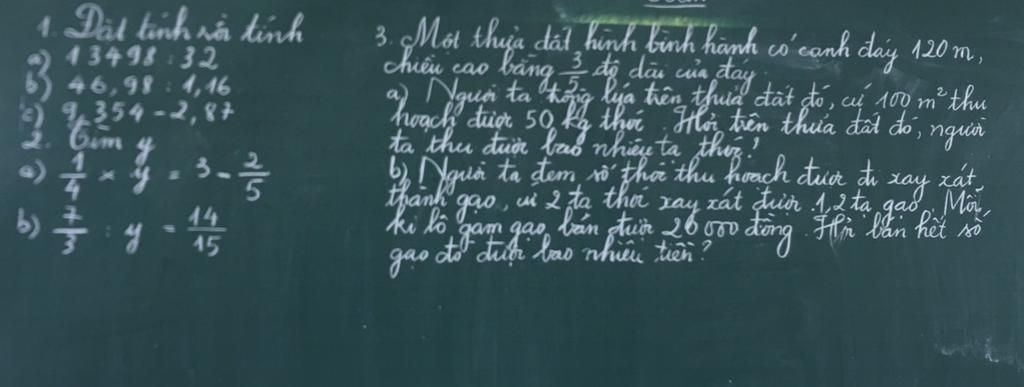 1. Đặt tính rồi tính
a) 13498 : 32
b) 46,98 : 1,16
c) 9,354 - 2,87
2. Tìm y
a) 1/4 × y = 3 - 2/5
b) 7/3 : y = 14/15
3. Một thửa đất hình bình hành có cạnh đáy 120 m,
chiều cao bằng 3/5 độ dài của đáy
a) Người ta trồng lúa trên thửa đất đó, cứ 100 m² thu
hoạch được 50 kg thóc. Hỏi trên thửa đất đó, người
ta thu được bao nhiêu tạ thóc?
b) Người ta đem số thóc thu hoạch được đi xay xát
thành gạo, cứ 2 tạ thóc xay xát được 1,2 tạ gạo. Mỗi
ki lô gam gạo bán được 26 000 đồng. Hỏi bán hết số
gạo đó được bao nhiêu tiền?